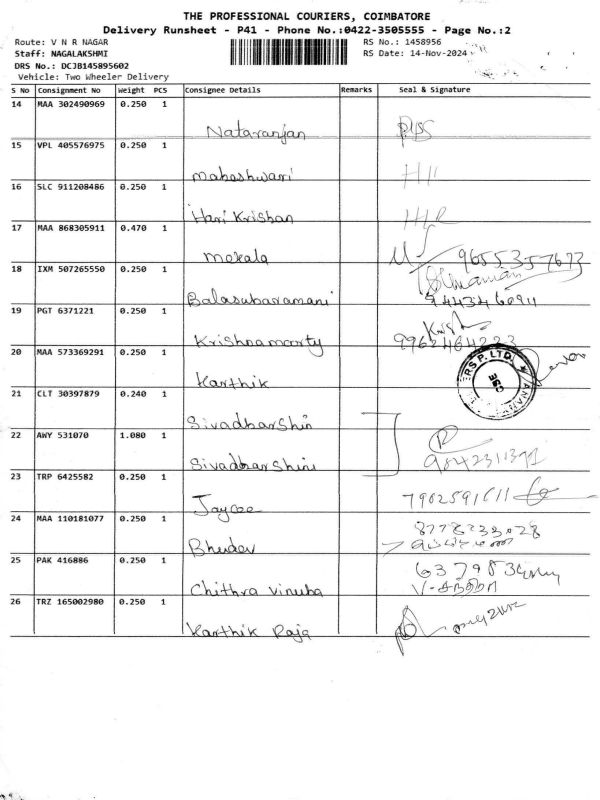 THE PROFESSIONAL COURIERS, COIMBATORE
Delivery Runsheet - P41 - Phone No.:0422-3505555 - Page No.:2
Route: V N R NAGAR
RS No.: 1458956
Staff: NAGALAKSHMI
RS Date: 14-Nov-2024
DRS No.: DCJB145895602
Vehicle: Two Wheeler Delivery
S No Consignment No Weight PCS Consignee Details Remarks Seal & Signature
14 MAA 302490969 0.250 1
Nataranjan
15 VPL 405576975 0.250 1
maheshwari
16 SLC 911208486 0.250 1
Hari Krishan
17 MAA 868305911 0.470 1
mekala 9655357673
18 IXM 507265550 0.250 1
Balasubaramani 9443460911
19 PGT 6371221 0.250 1
Krishnamorty 9962464223
20 MAA 573369291 0.250 1
Karthik
21 CLT 30397879 0.240 1
Sivadharshin
22 AWY 531070 1.080 1
Sivadharshini 9842311371
23 TRP 6425582 0.250 1
Jaycee 7902591611
24 MAA 110181077 0.250 1
Bhudev
25 PAK 416886 0.250 1
Chithra vinuba
26 TRZ 165002980 0.250 1
Karthik Raja